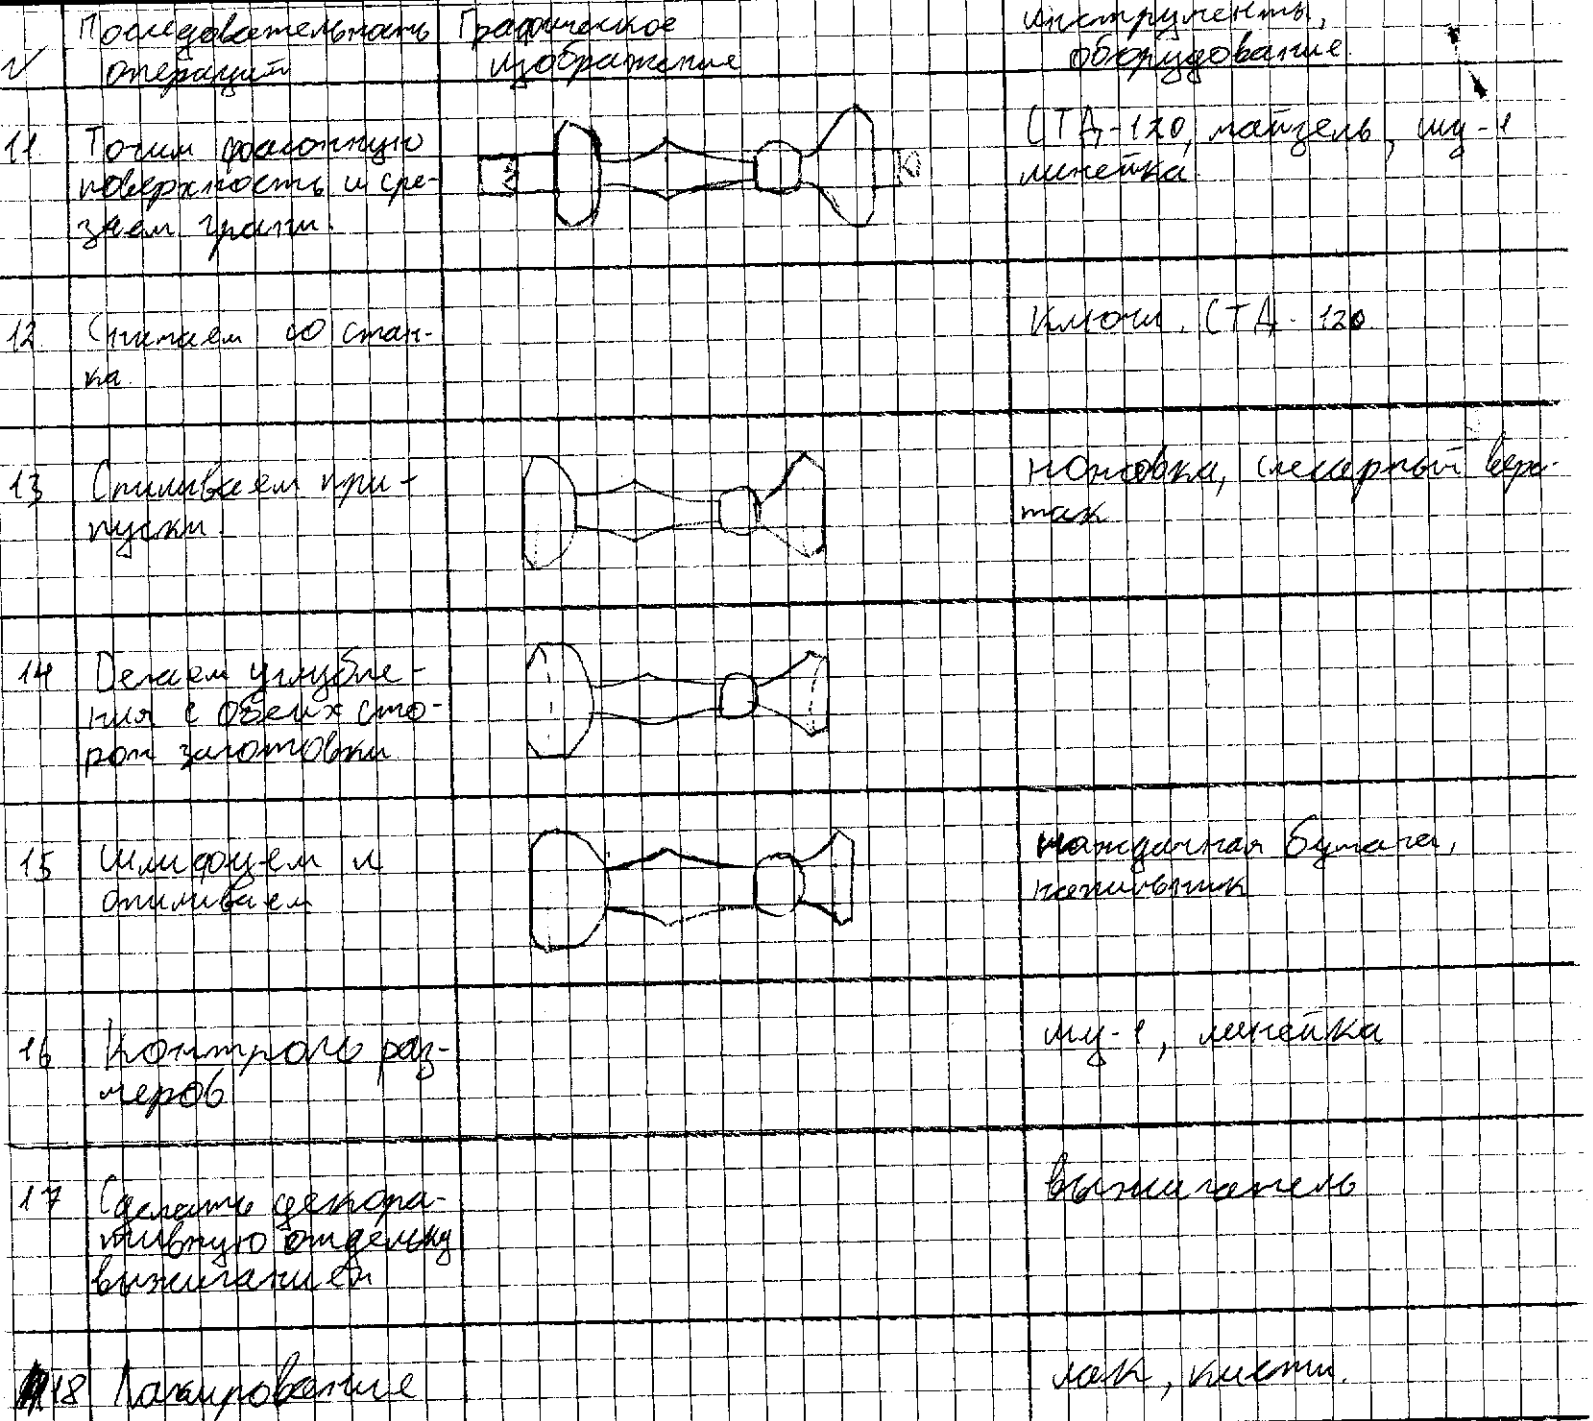 №
Последовательность
операций
Графическое
изображение
Инструменты,
оборудование.
11 Точим фасонную
поверхность и сре-
заем грани.
СТД-120, майзель, шц-1
линейка
12. Снимаем со стан-
ка.
Ключи. СТД-120.
13 Спиливаем при-
пуски.
ножовка, слесарный верс-
так
14 Делаем углубле-
ния с обеих сто-
рон заготовки
15 Шлифуем и
опиливаем
наждачная бумага,
напильник
16 Контроль раз-
меров
шц-1, линейка
17 Сделать декора-
тивную отделку
выжиганием
выжигатель
18 Лакирование
лак, кисти.